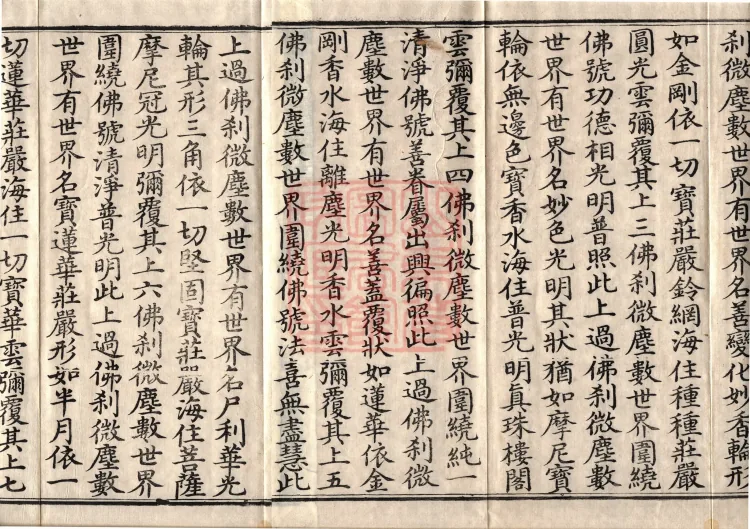 刹微塵數世界有世界名善變化妙香輪形
如金剛依一切寶莊嚴鈴網海住種種莊嚴
圓光雲彌覆其上三佛刹微塵數世界圍繞
佛號功德相光明普照此上過佛刹微塵數
世界有世界名妙色光明其狀猶如摩尼寶
輪依無邊色寶香水海住普光明真珠樓閣
雲彌覆其上四佛刹微塵數世界圍繞純一
清淨佛號善眷屬出興徧照此上過佛刹微
塵數世界有世界名善蓋覆狀如蓮華依金
剛香水海住離塵光明香水雲彌覆其上五
佛刹微塵數世界圍繞佛號法喜無盡慧此
上過佛刹微塵數世界有世界名尸利華光
輪其形三角依一切堅固寶莊嚴海住菩薩
摩尼冠光明彌覆其上六佛刹微塵數世界
圍繞佛號清淨普光明此上過佛刹微塵數
世界有世界名寶蓮華莊嚴形如半月依一
切蓮華莊嚴海住一切寶華雲彌覆其上七